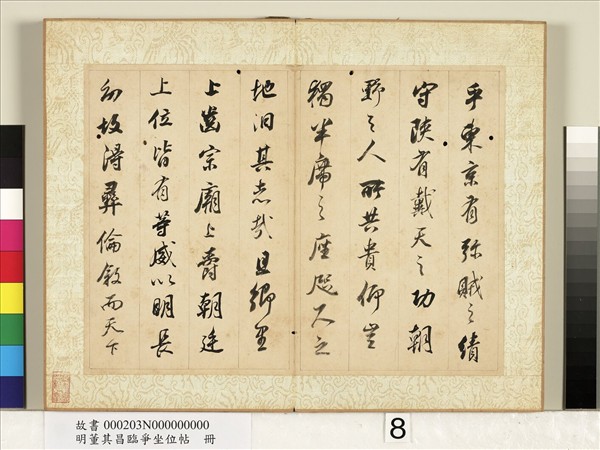 平東京有殄賊之績
守陝有戴天之功朝
野之人所共貴仰豈
獨半席之座咫尺之
地汨其志哉且鄉里
上齒宗廟上爵朝廷
上位皆有等威以明長
幼故得彝倫敘而天下
故書 000203N000000000
明董其昌臨爭坐位帖 冊
8